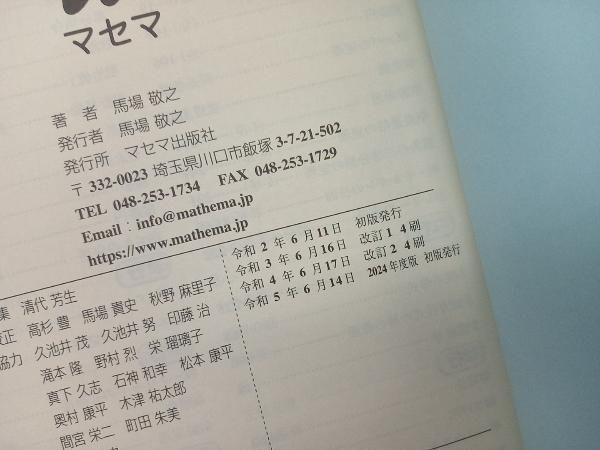 マセマ
著 者 馬場 敬之
発行者 馬場 敬之
発行所 マセマ出版社
〒332-0023 埼玉県川口市飯塚 3-7-21-502
TEL 048-253-1734 FAX 048-253-1729
Email:info@mathema.jp
https://www.mathema.jp
集 清代 芳生
校正 高杉 豊 馬場 貴史 秋野 麻里子
協力 久池井 茂 久池井 努 印藤 治
滝本 隆 野村 烈 栄 瑠璃子
真下 久志 石神 和幸 松本 康平
奥村 康平 木津 祐太郎
間宮 栄二 町田 朱美
令和 2 年 6 月 11 日 初版発行
令和 3 年 6 月 16 日 改訂 1 4 刷
令和 4 年 6 月 17 日 改訂 2 4 刷
令和 5 年 6 月 14 日 2024 年度版 初版発行